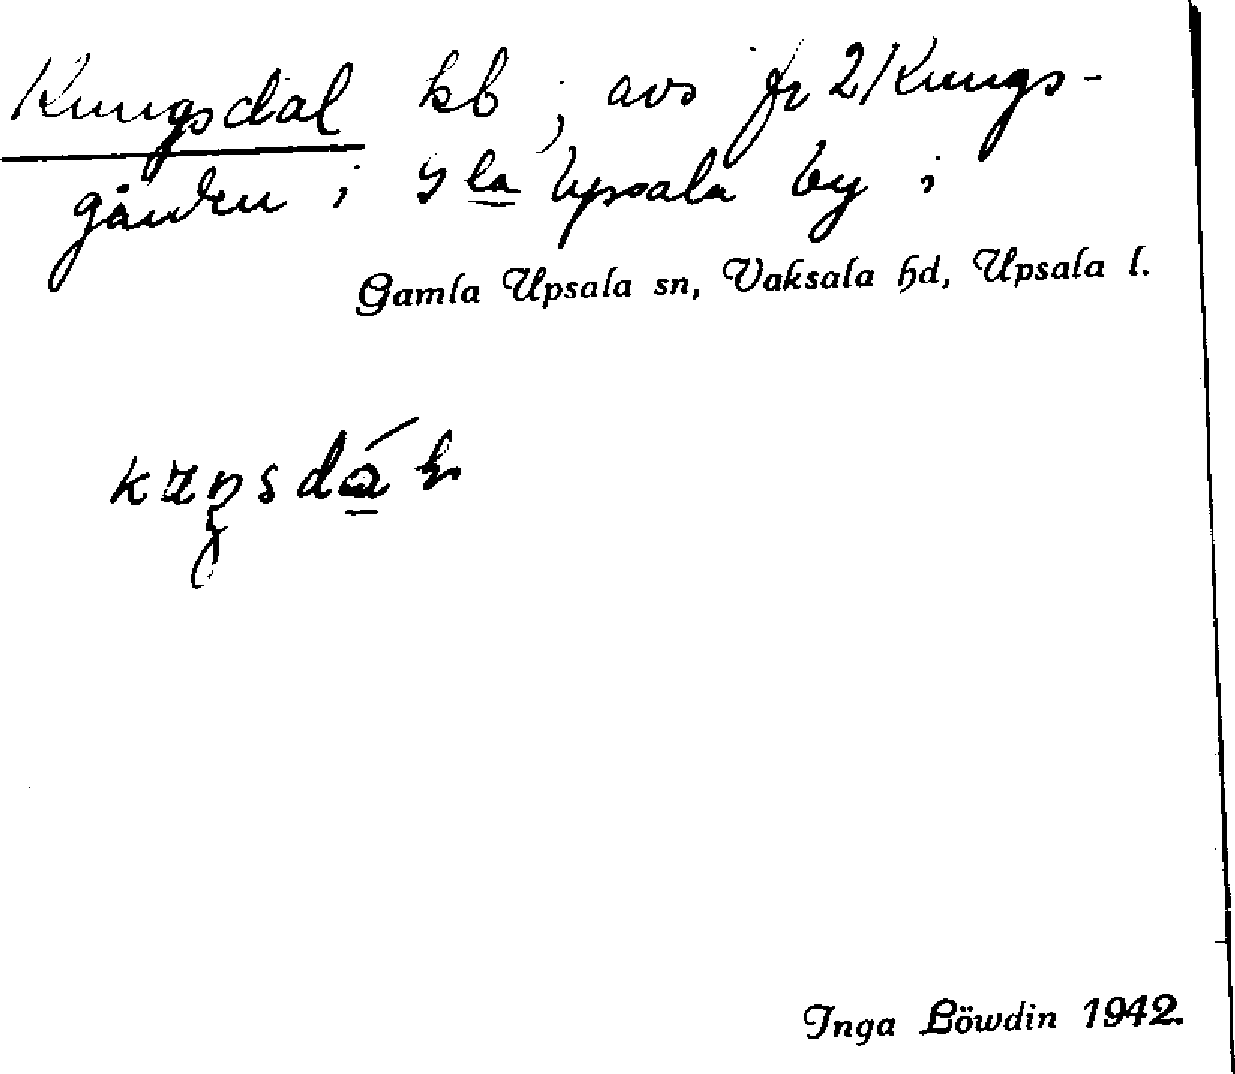 Kungsdal kb, avs fr 2/Kungs-
gården i G la Upsala by i
Gamla Upsala sn, Vaksala hd, Upsala l.
Inga Löwdin 1942.